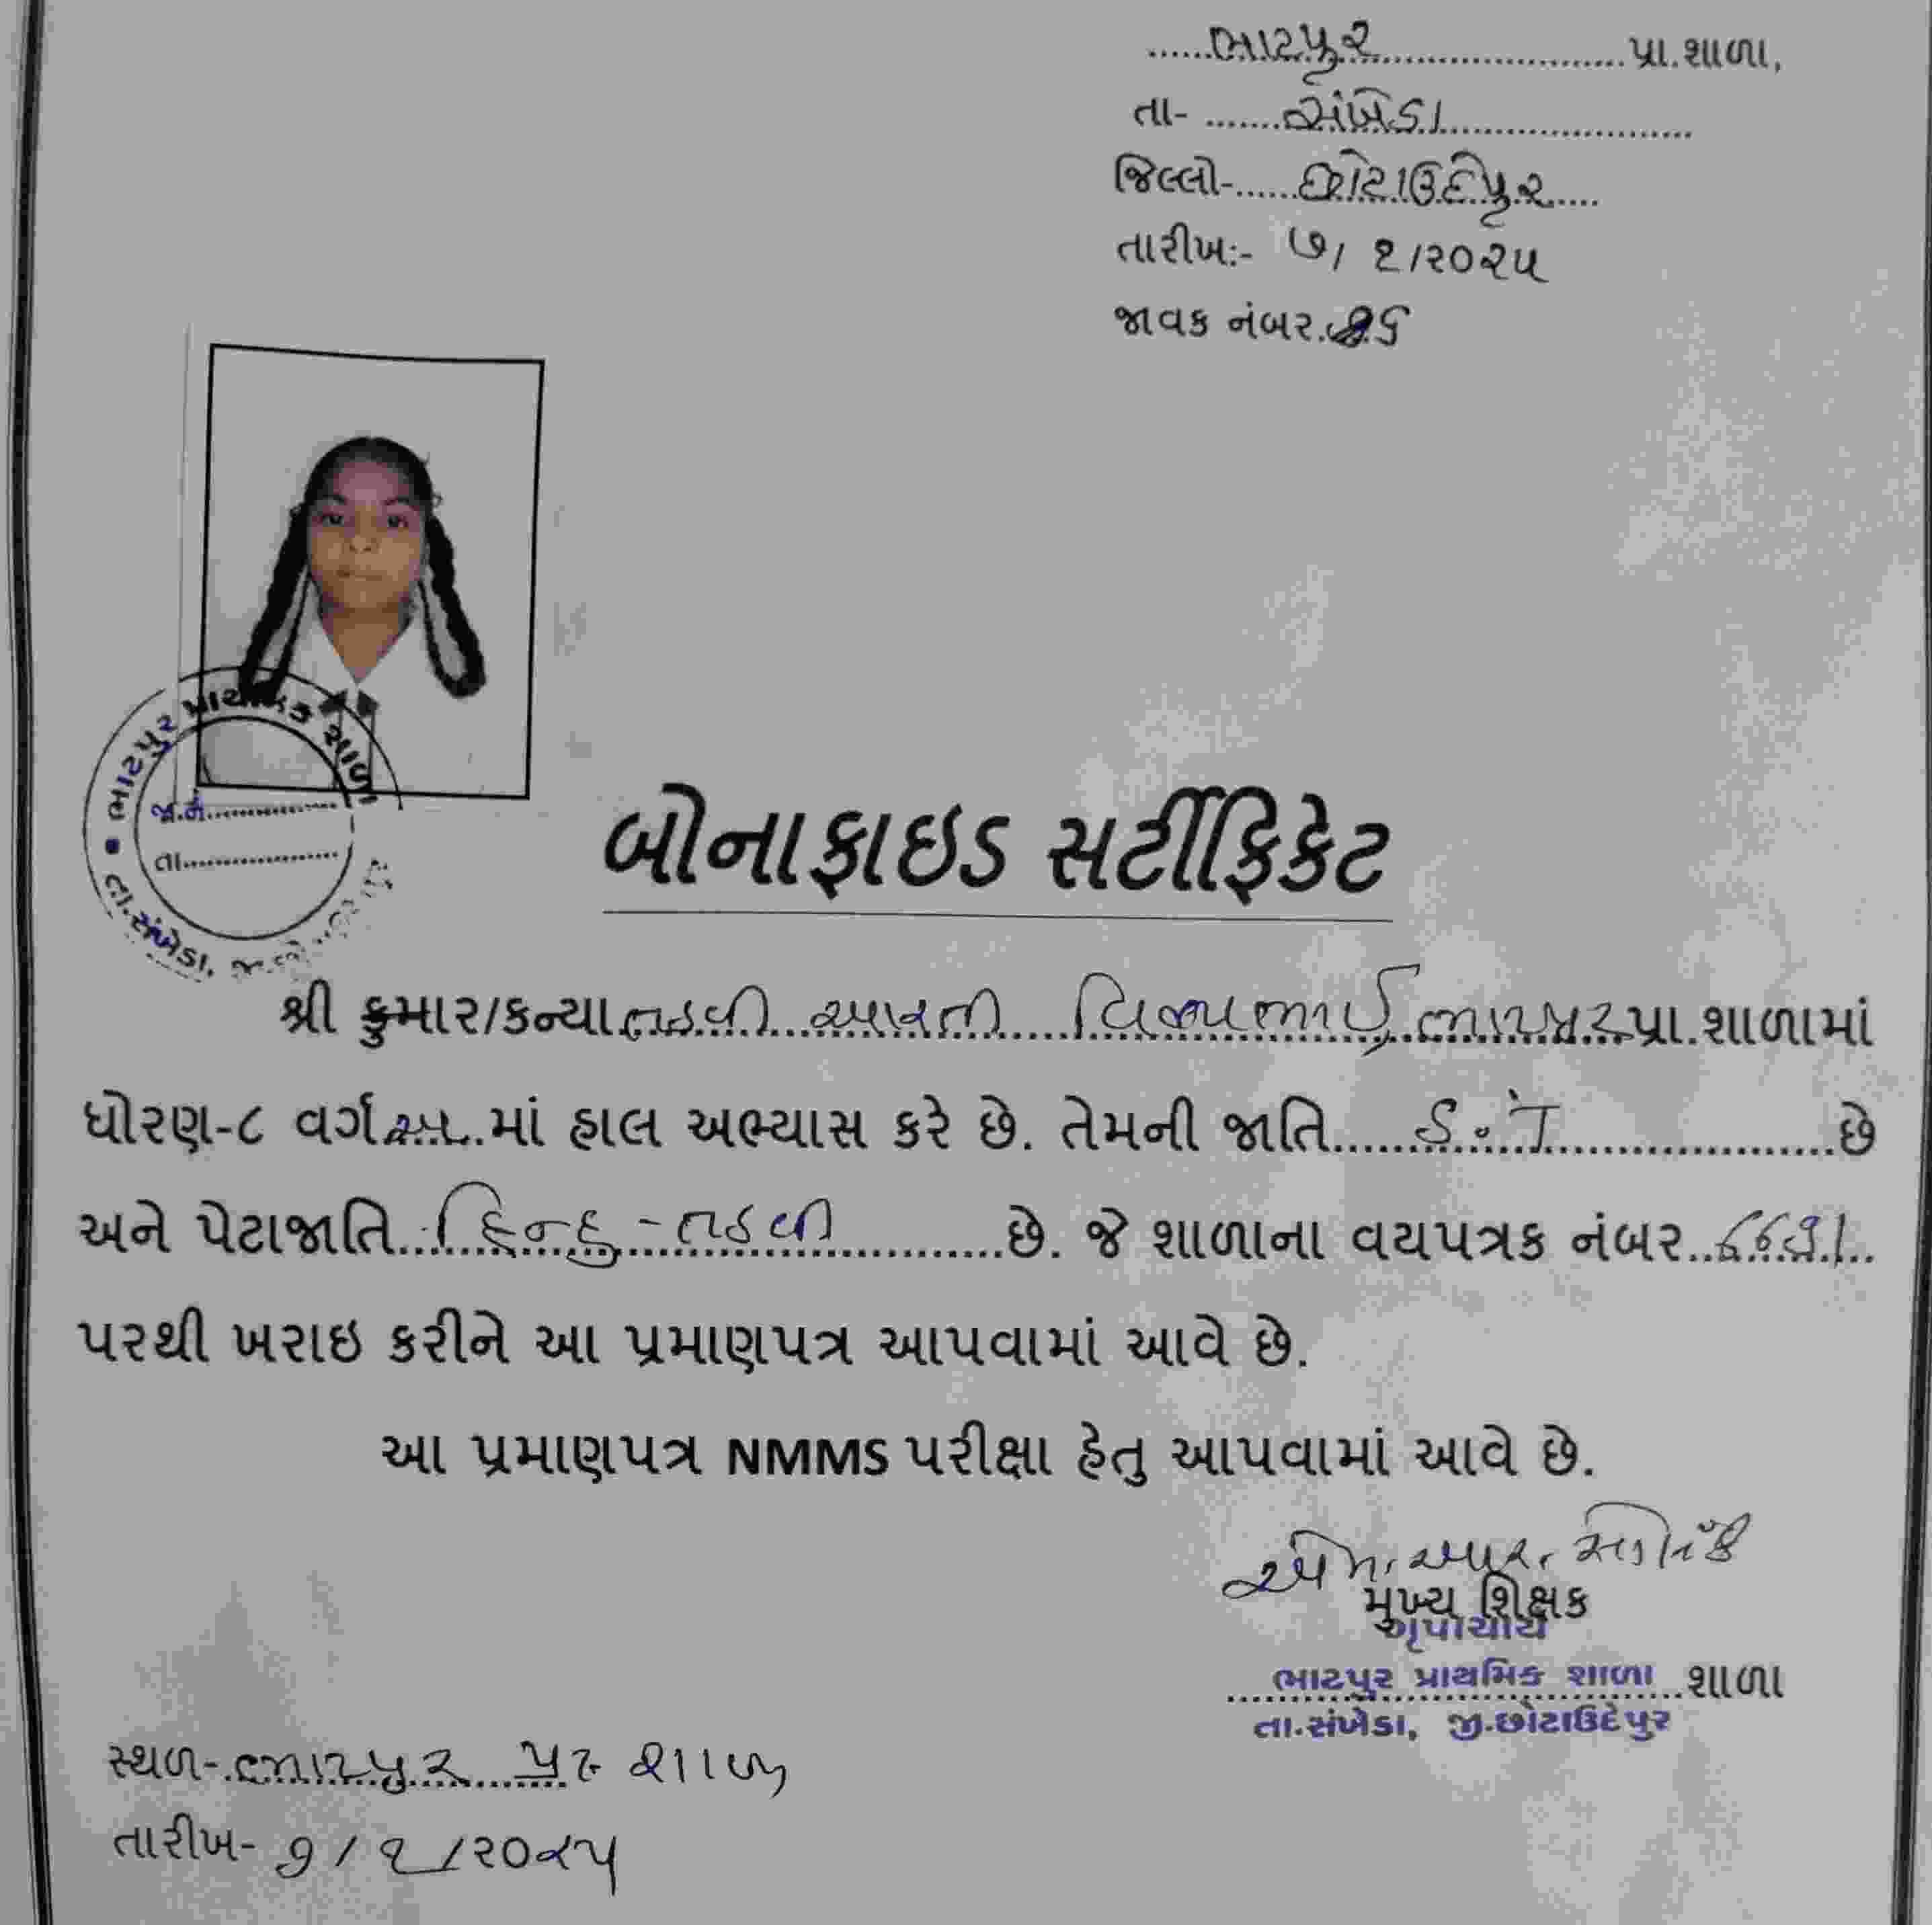 ભાટપુર પ્રા.શાળા,
તા- સંખેડા
જિલ્લો- છોટાઉદેપુર
તારીખ:- ૭/ ૧/૨૦૨૫
જાવક નંબર.
ભાટપુર પ્રાથમિક શાળા
જા.નં.
તા.
તા.સંખેડા,
બોનાફાઇડ સર્ટીફિકેટ
શ્રી કુમાર/કન્યા તડવી આરતી વિજયભાઈ ભાટપુર પ્રા.શાળામાં
ધોરણ-૮ વર્ગ માં હાલ અભ્યાસ કરે છે. તેમની જાતિ S.T છે
અને પેટાજાતિ હિન્દુ - તડવી છે. જે શાળાના વયપત્રક નંબર
પરથી ખરાઇ કરીને આ પ્રમાણપત્ર આપવામાં આવે છે.
આ પ્રમાણપત્ર NMMS પરીક્ષા હેતુ આપવામાં આવે છે.
એમ. આર.
મુખ્ય શિક્ષક
ભાટપુર પ્રાથમિક શાળા શાળા
તા.સંખેડા, જી.છોટાઉદેપુર
સ્થળ- ભાટપુર પ્રા શાળા
તારીખ- ૭/૧/૨૦૨૫